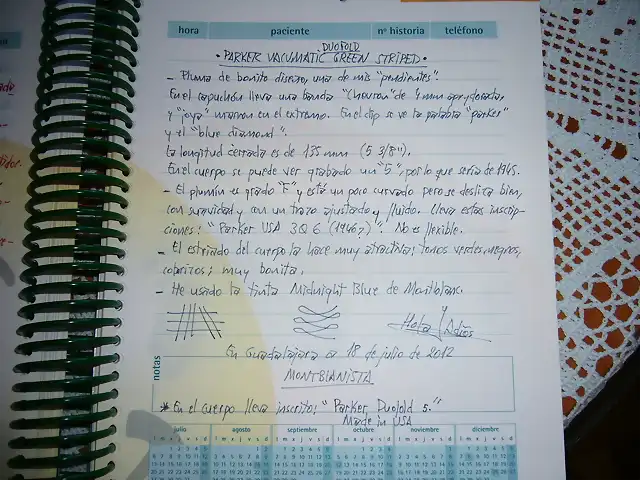 hora paciente nº historia teléfono
DUOFOLD
• PARKER VACUMATIC GREEN STRIPED •
– Pluma de bonito diseño, una de mis "pendientes".
En el capuchón lleva una banda "Chevron" de 4 mm aprox, dorada,
y "joya" marrón en el extremo. En el clip se ve la palabra "parker"
y el "blue diamond".
La longitud cerrada es de 135 mm (5 3/8").
En el cuerpo se puede ver grabado un "5", por lo que sería de 1945.
– El plumín es grado "F" y está un poco curvado pero se desliza bien,
con suavidad y con un trazo ajustado y fluido. Lleva estas inscrip-
ciones: "Parker USA 3Q6 (1946?)". No es flexible.
– El estriado del cuerpo la hace muy atractiva; tonos verdes, negros,
cobrizos; muy bonita.
– He usado la tinta Midnight Blue de Montblanc.
Hola y Adiós
En Guadalajara a 18 de julio de 2012
notas
MONTBIANISTA
* En el cuerpo lleva inscrito: "Parker Duofold 5."
Made in USA
julio agosto septiembre octubre noviembre diciembre
l m x j v s d l m x j v s d l m x j v s d l m x j v s d l m x j v s d l m x j v s d